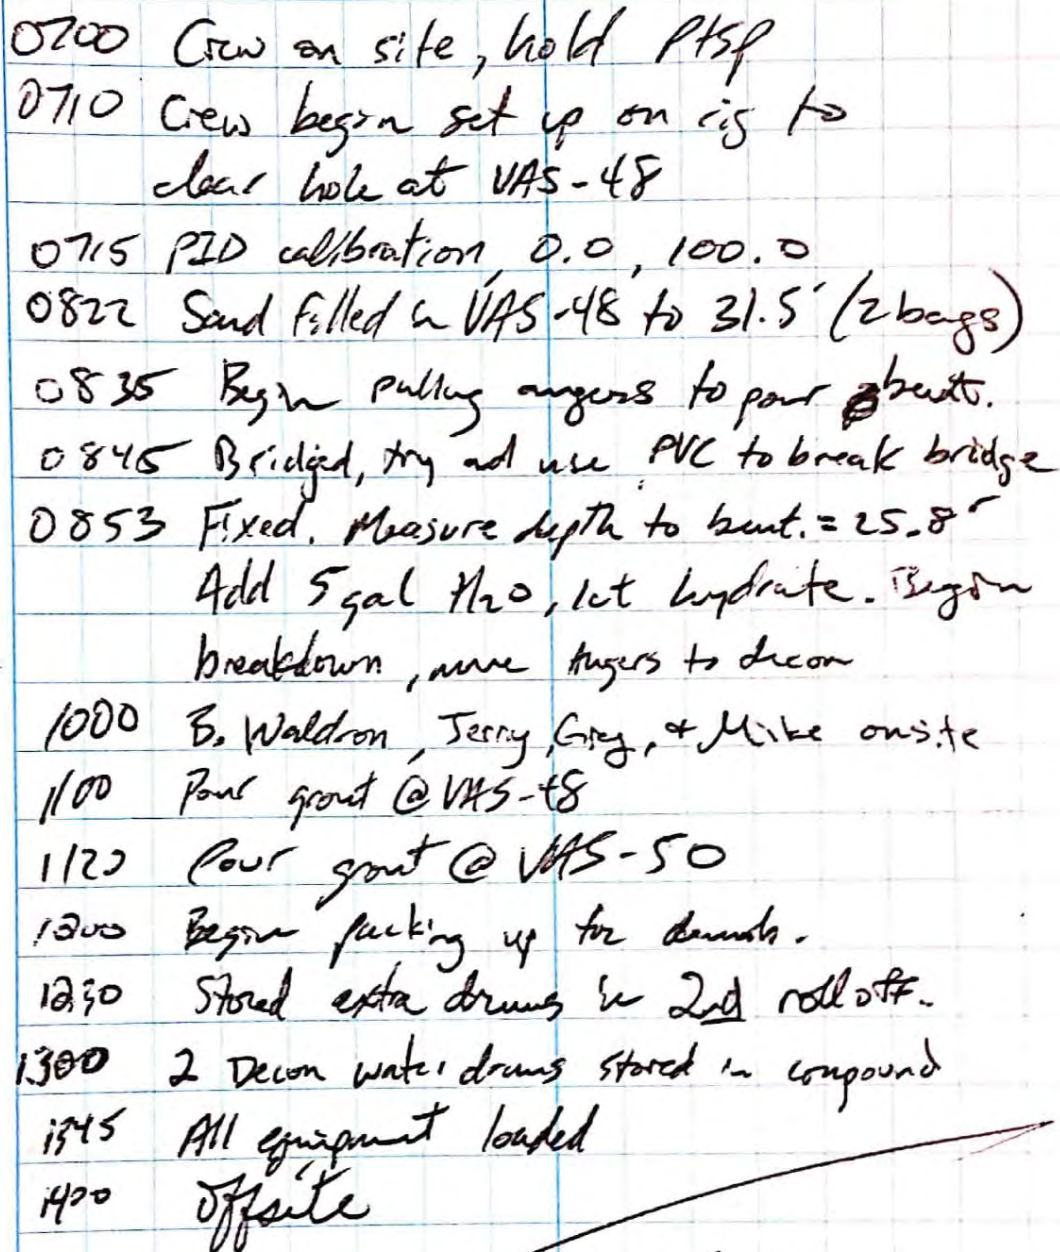 0700 Crew on site, hold PTSP
0710 Crew begin set up on rig to
clear hole at VAS-48
0715 PID calibration, 0.0, 100.0
0822 Sand filled in VAS-48 to 31.5' (2 bags)
0835 Begin pulling augers to pour bent.
0845 Bridged, try and use PVC to break bridge
0853 Fixed. Measure depth to bent. = 25.8'
Add 5 gal H2O, let hydrate. Begin
breakdown, move Augers to decon
1000 B. Waldron, Jerry, Greg, + Mike onsite
1100 Pour grout @ VAS-48
1120 Pour grout @ VAS-50
1200 Begin packing up for demob.
1230 Stored extra drums in 2nd roll off.
1300 2 Decon water drums stored in compound
1345 All equipment loaded
1420 Offsite